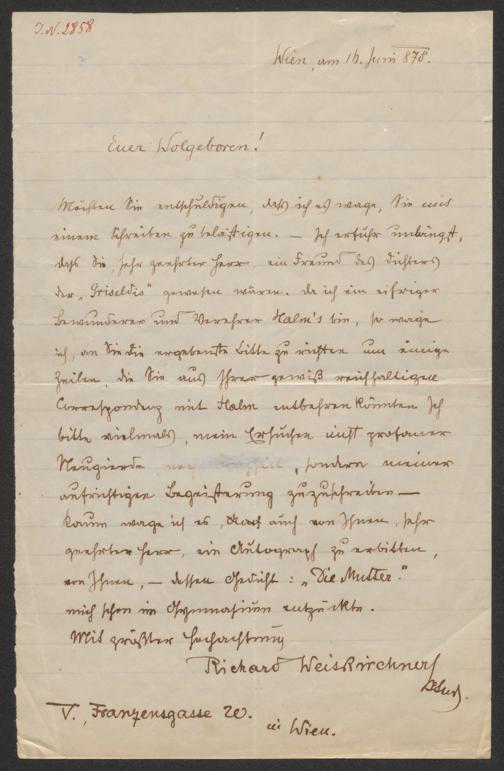 J.N. 2858
Wien, am 16. Juni 878.
Euer Wolgeboren!
Möchten Sie entschuldigen, daß ich es wage, Sie mit
einem Schreiben zu belästigen. — Ich erfuhr unlängst,
daß Sie, sehr geehrter Herr, ein Freund des Dichters
der „Griseldis" gewesen wären. Da ich ein eifriger
Bewunderer und Verehrer Halm's bin, so wage
ich, an Sie die ergebenste Bitte zu richten um einige
Zeilen, die Sie aus Ihrer gewiß reichhaltigen
Correspondenz mit Halm entbehren könnten. Ich
bitte vielmals, mein Ersuchen nicht profaner
Neugierde, sondern meiner
aufrichtigen Begeisterung zuzuschreiben —
Kaum wage ich es, auch von Ihnen, sehr
geehrter Herr, ein Autograph zu erbitten,
von Ihnen, — dessen Gedicht: „Die Mutter"
mich schon im Gymnasium entzückte.
Mit größter Hochachtung
Richard Weiskirchner
V., Franzensgasse 20.
in Wien.